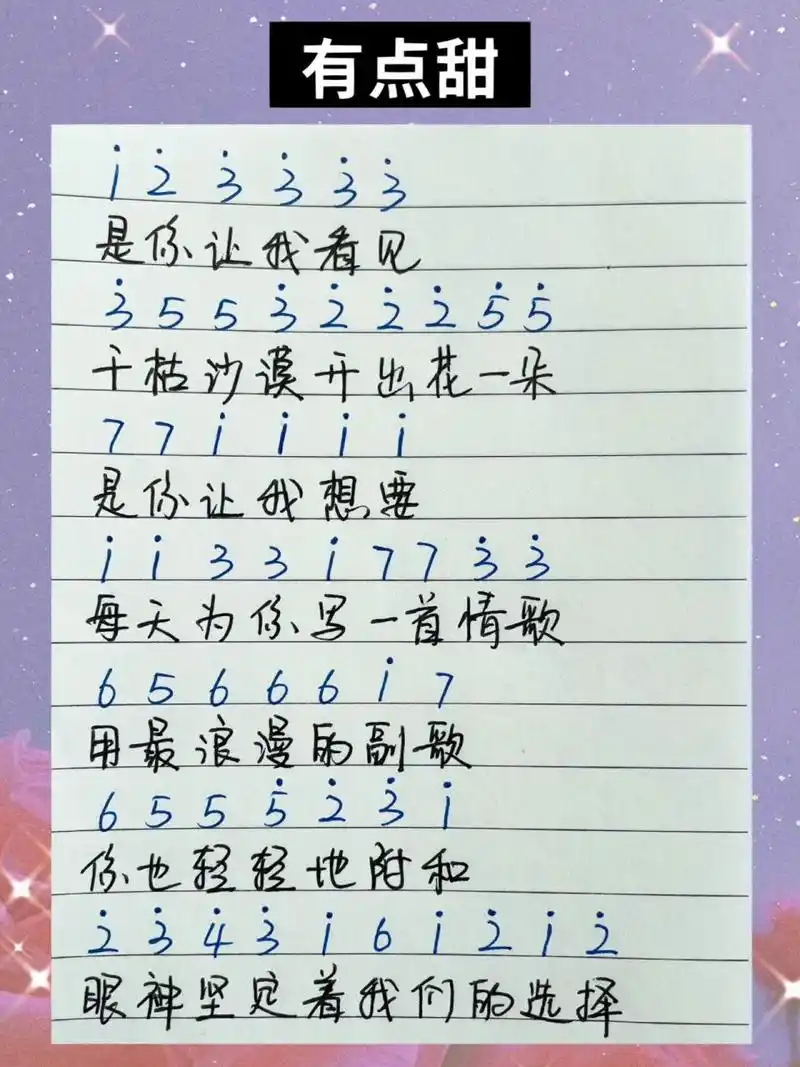 有点甜
i 2̇ 3̇ 3̇ 3̇ 3̇
是你让我看见
3̇ 5 5 3̇ 2̇ 2̇ 2̇ 5̇ 5̇
干枯沙漠开出花一朵
7 7 i i i i
是你让我想要
i i 3 3 i 7 7 3̇ 3̇
每天为你写一首情歌
6 5 6 6 6 i 7
用最浪漫的副歌
6 5 5 5̇ 2̇ 3̇ i
你也轻轻地附和
2̇ 3̇ 4̇ 3̇ i 6 i 2̇ i 2̇
眼神坚定着我们的选择